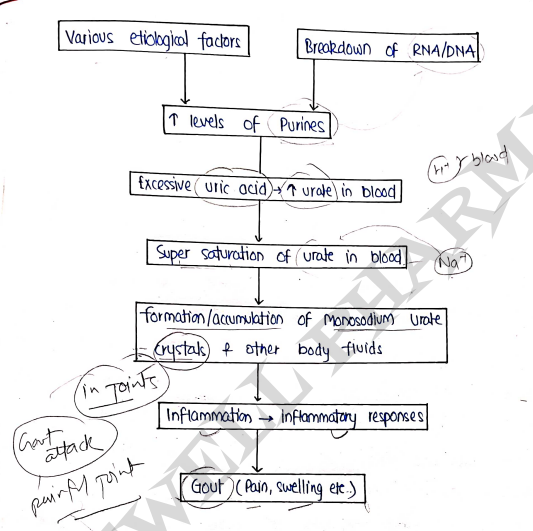 Various etiological factors
Breakdown of RNA/DNA
↑ levels of Purines
Excessive uric acid → ↑ urate in blood
H+ blood
Super saturation of urate in blood
Na+
formation/accumulation of Monosodium urate
crystals & other body fluids
in joints
Inflammation → inflammatory responses
Gout
attack
painful joint
Gout (Pain, swelling etc.)
WELL PHARM